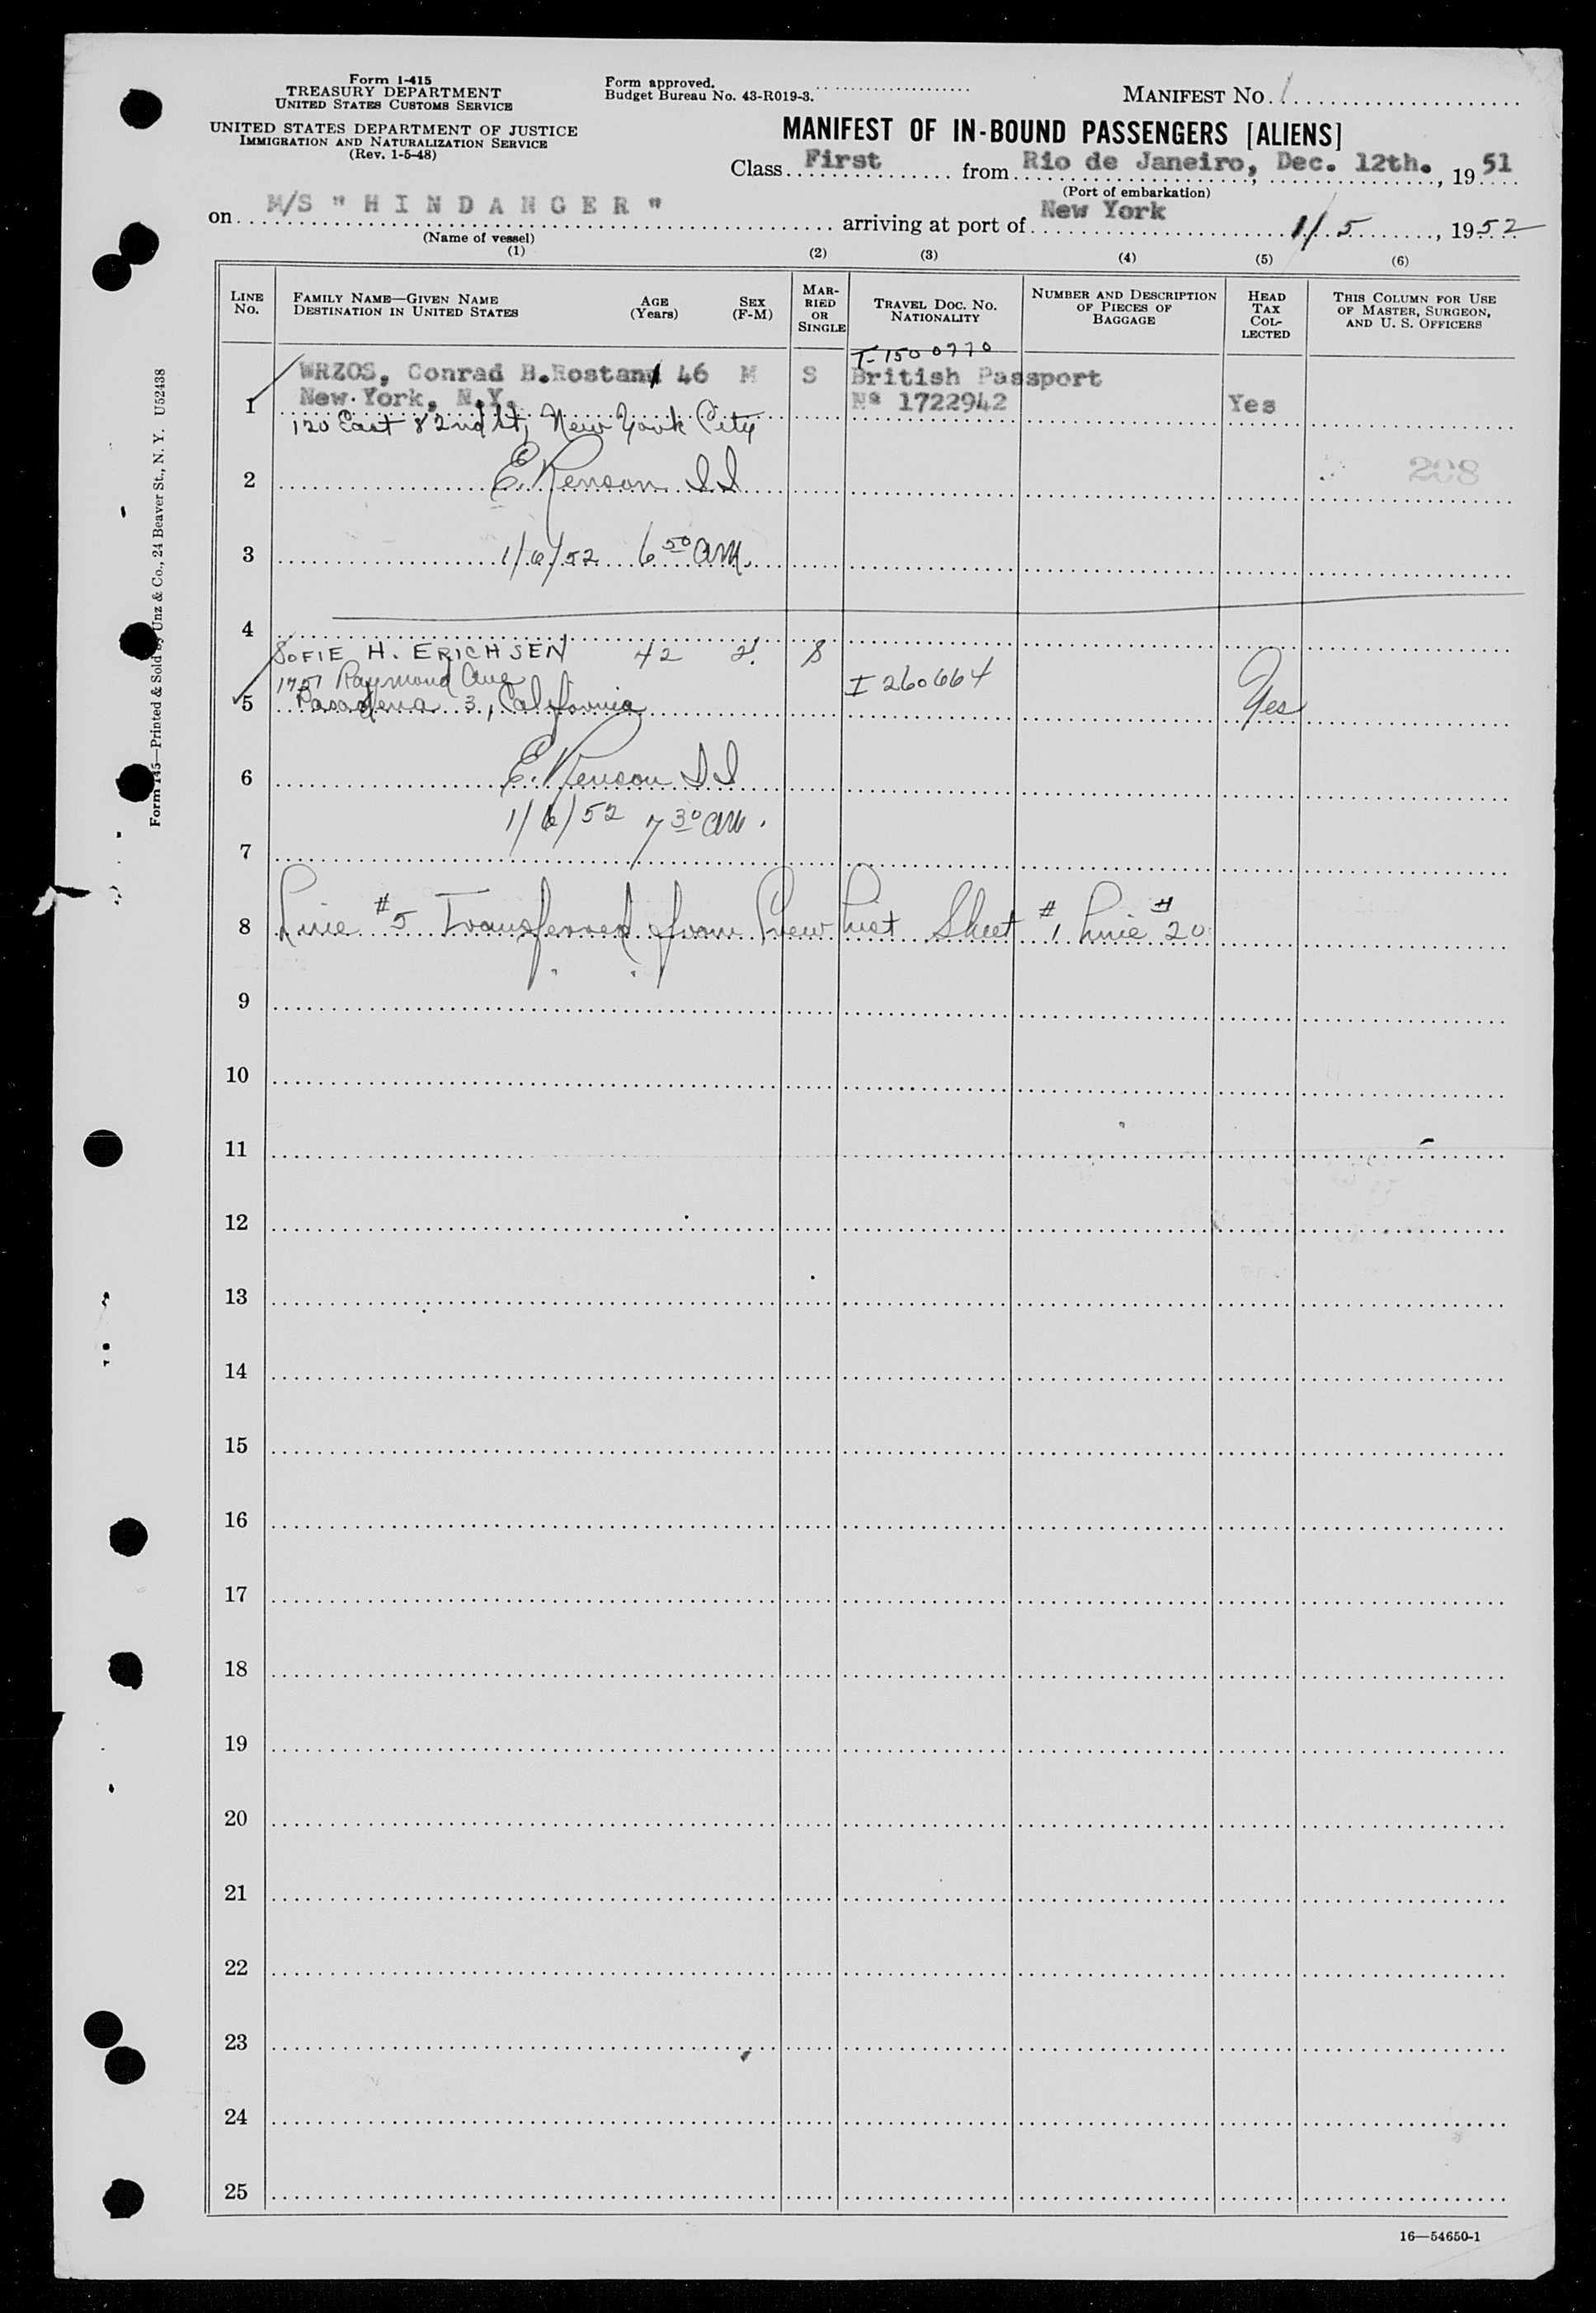 Form I-415
TREASURY DEPARTMENT
UNITED STATES CUSTOMS SERVICE
UNITED STATES DEPARTMENT OF JUSTICE
IMMIGRATION AND NATURALIZATION SERVICE
(Rev. 1-5-48)
Form approved.
Budget Bureau No. 43-R019-3.
MANIFEST NO. 1
MANIFEST OF IN-BOUND PASSENGERS [ALIENS]
Class First from Rio de Janeiro, Dec. 12th., 1951
(Port of embarkation)
on M/S " H I N D A N G E R " arriving at port of New York 1/5, 1952
(Name of vessel)
(1) (2) (3) (4) (5) (6)
LINE NO.
FAMILY NAME—GIVEN NAME
DESTINATION IN UNITED STATES
AGE (Years)
SEX (F-M)
MARRIED OR SINGLE
TRAVEL DOC. NO.
NATIONALITY
NUMBER AND DESCRIPTION OF PIECES OF BAGGAGE
HEAD TAX COLLECTED
THIS COLUMN FOR USE OF MASTER, SURGEON, AND U. S. OFFICERS
T-1500770
1 WRZOS, Conrad B.Rostand 46 M S British Passport
New York, N.Y. Nº 1722942 Yes
120 East 82nd St, New York City
2 E. Renson I I 208
3 1/6/52 6 50 AM.
4
SOFIE H. ERICHSEN 42 S
1757 Raymond Ave I 260664
5 Pasadena 3, California Yes
6 E. Renson I I
1/6/52 7 30 AM.
7
8 Line # 5 Transferred from Crew List Sheet # 1 Line # 20
9
10
11
12
13
14
15
16
17
18
19
20
21
22
23
24
25
Form 145—Printed & Sold by Unz & Co., 24 Beaver St., N. Y. U52438
16—54650-1